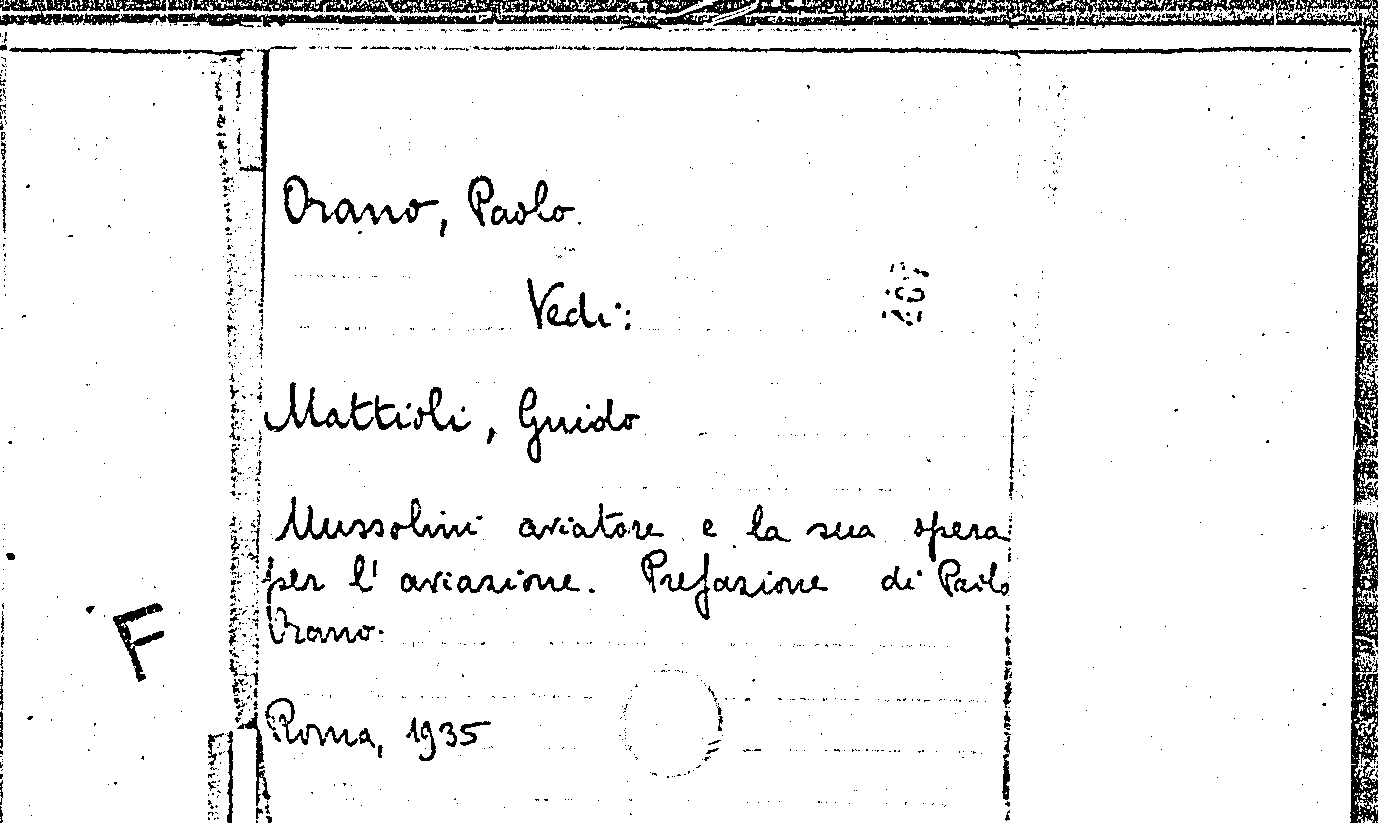 Orano, Paolo.
Vedi:
207
Mattioli, Guido
Mussolini aviatore e la sua opera
per l'aviazione. Prefazione di Paolo
Orano.
F
Roma, 1935